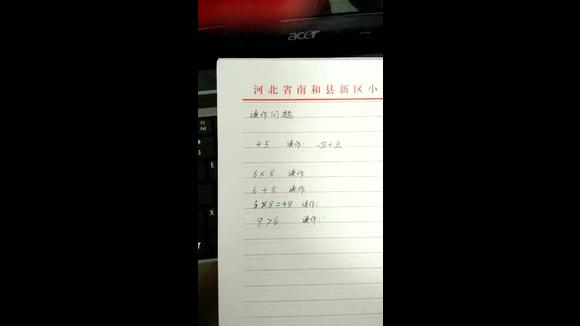 acer
河北省南和县新区小
读作问题
45 读作: 四十五
6×8 读作
6+8 读作
6×8=48 读作:
9>6 读作: